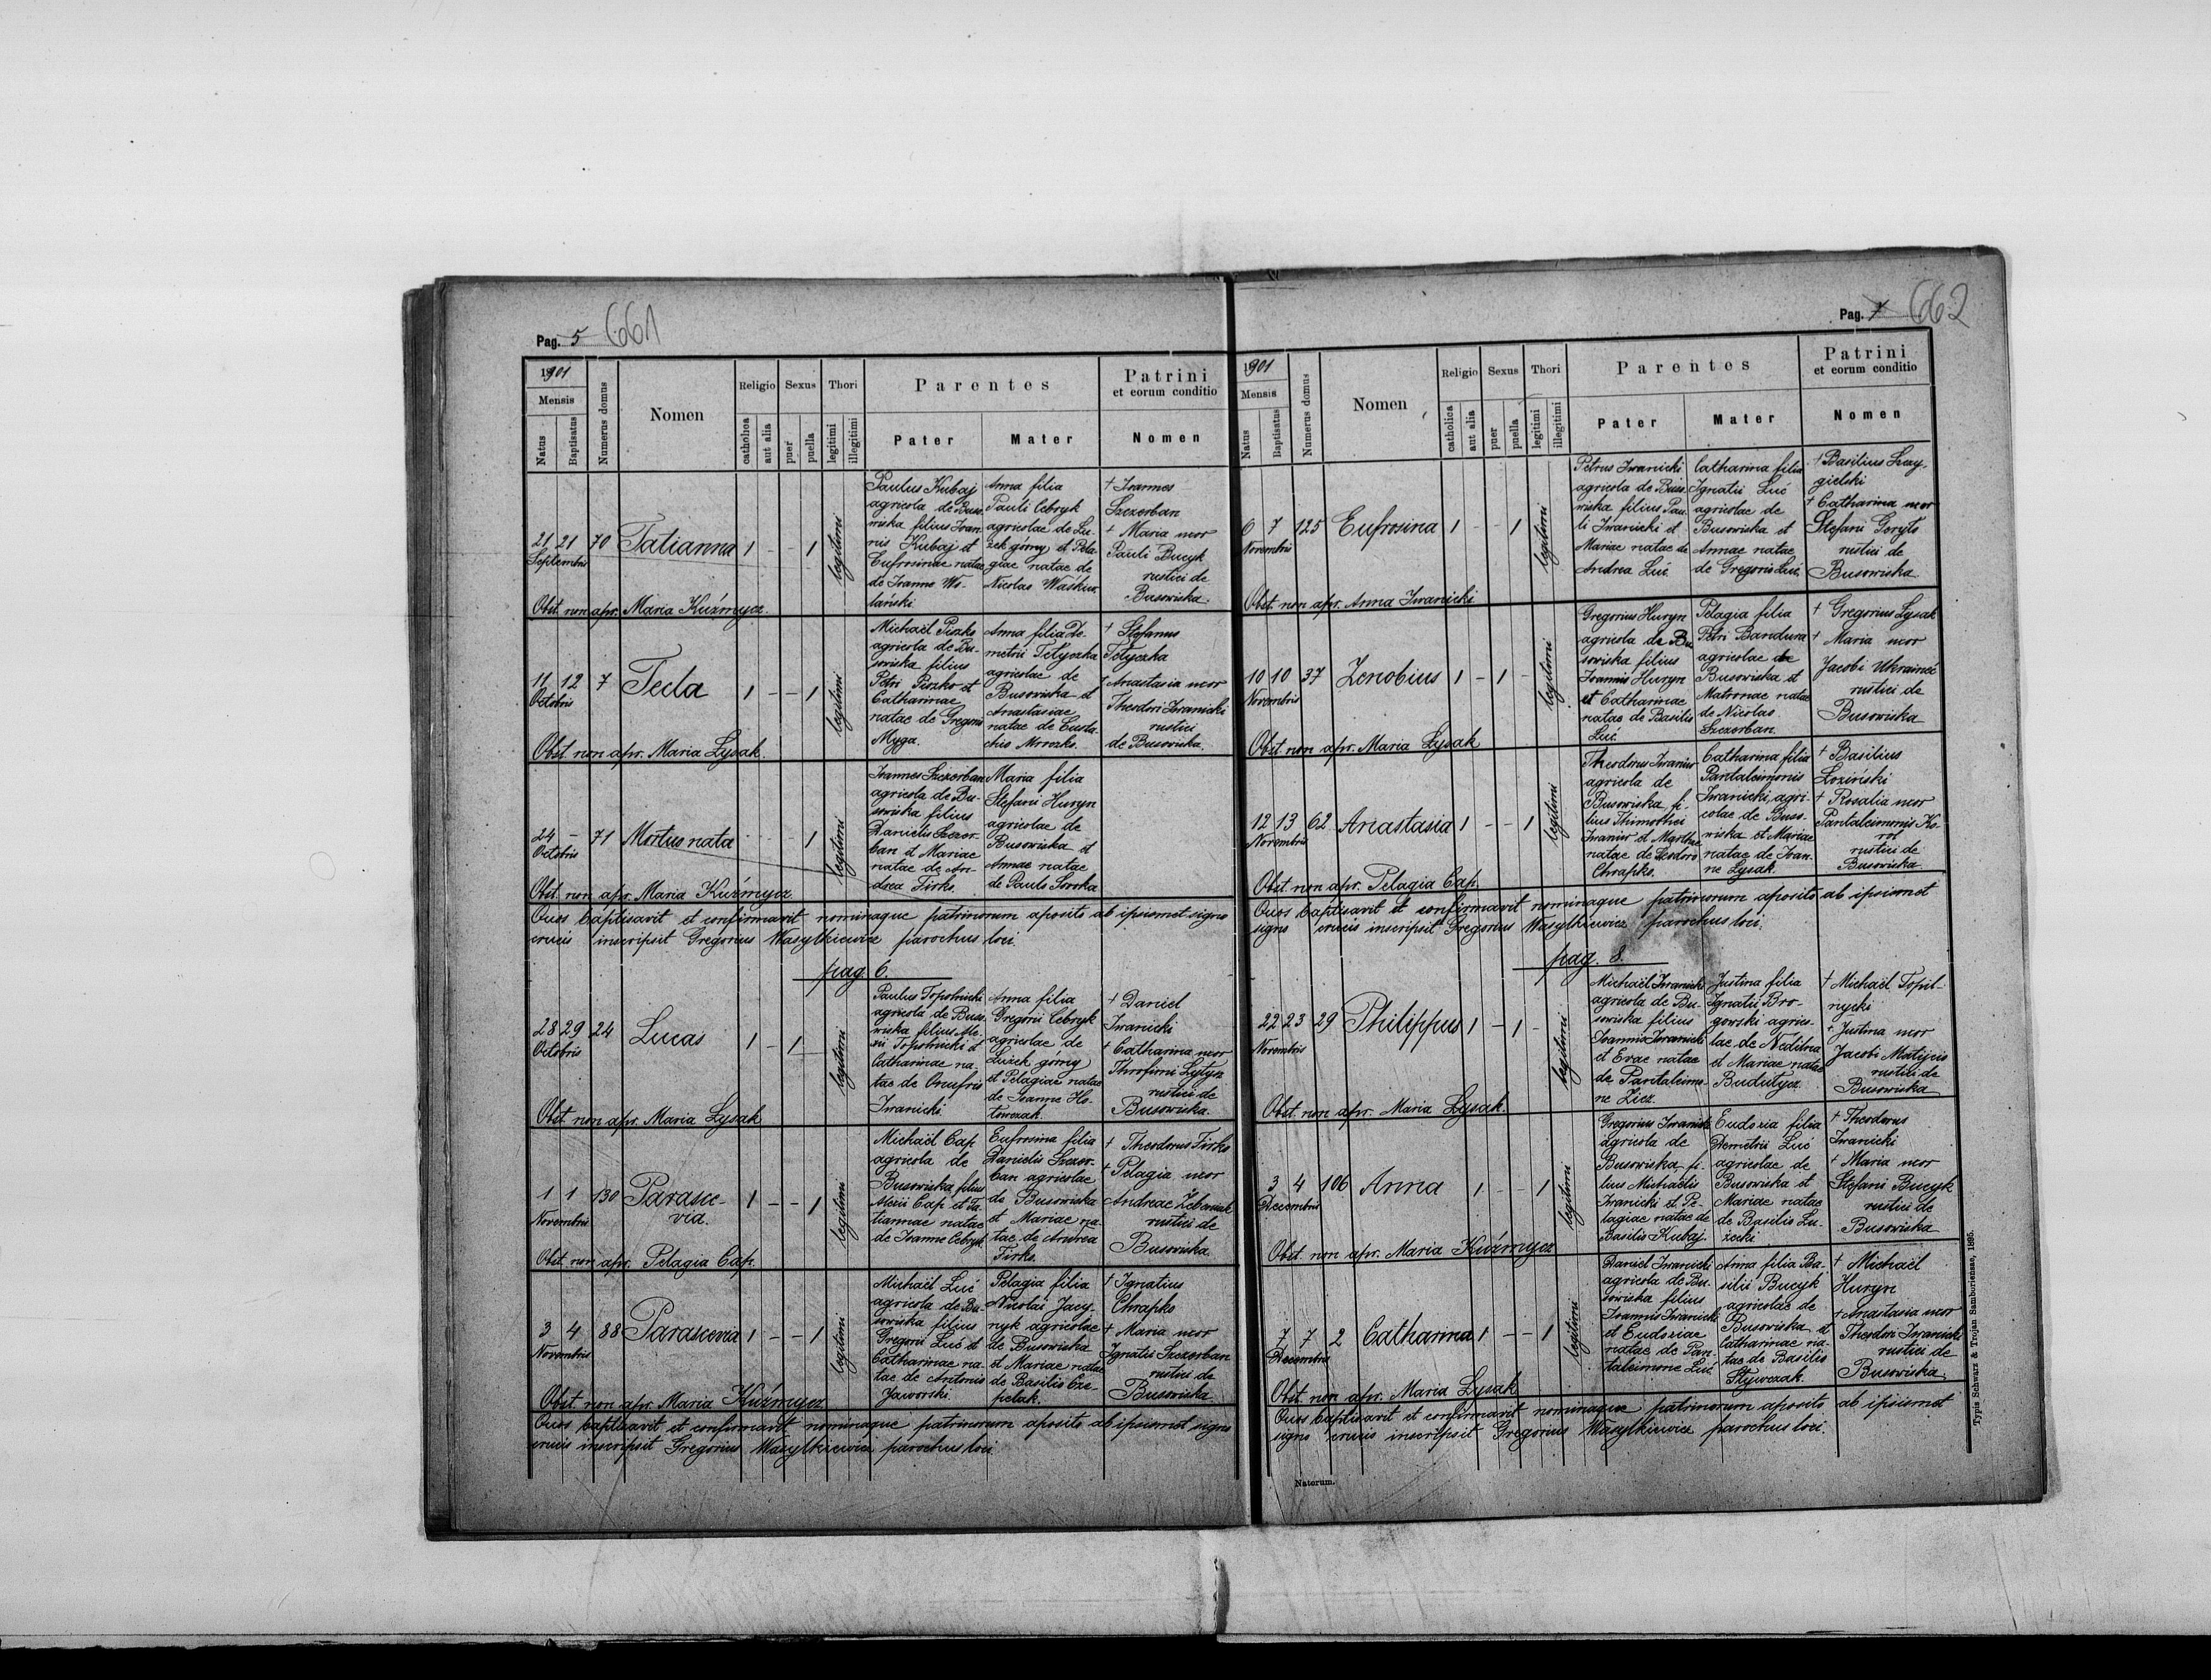 Pag. 5 661
1901
Mensis
Natus
Baptisatus
Numerus domus
Nomen
Religio
catholica
aut alia
Sexus
puer
puella
Thori
legitimi
illegitimi
Parentes
Pater
Mater
Patrini
et eorum conditio
Nomen
21 21 70 Tatianna 1 - - 1 legitimi
Septembris
Paulus Kubaj
agricola de Buso-
wiska filius Joan-
nis Kubaj et
Eufrosinae natae
de Joanne Wo-
lański.
Anna filia
Pauli Cebryk
agricolae de Łu-
żek górny et Pela-
giae natae de
Nicolao Waśkiw.
† Joannes
Szczerban
† Maria uxor
Pauli Bucyk
rustici de
Busowiska.
Obst. non apr. Maria Kuźmycz.
11 12 7 Tecla 1 - - 1 legitimi
Octobris
Michaël Piszko
agricola de Bu-
sowiska filius
Petri Piszko et
Catharinae
natae de Gregorio
Myga.
Anna filia De-
metrii Tetyczka
agricolae de
Busowiska et
Anastasiae
natae de Eusta-
chio Mrozko.
† Stefanus
Tetyczka
† Anastasia uxor
Theodori Iwanicki
rustici
de Busowiska.
Obst. non apr. Maria Łysak.
24 - 71 Mortuo nata 1 legitimi
Octobris
Joannes Szczerban
agricola de Bu-
sowiska filius
Danielis Szczer-
ban et Mariae
natae de An-
drea Firko.
Maria filia
Stefani Huryn
agricolae de
Busowiska et
Annae natae
de Paulo Soroka
Obst. non apr. Maria Kuźmycz
Quos baptisavit et confirmavit nominaque patrinorum aposito ab ipsismet signo
crucis inscripsit Gregorius Wasylkiewicz parochus loci.
pag. 6.
28 29 24 Lucas 1 - 1 - legitimi
Octobris
Paulus Topolnicki
agricola de Buso-
wiska filius Ale-
xii Topolnicki et
Catharinae na-
tae de Onufrio
Iwanicki.
Anna filia
Gregorii Cebryk
agricolae de
Łużek górny
et Pelagiae natae
de Joanne Ho-
† Daniel
Iwanicki
† Catharina uxor
rustici de
Busowiska.
Obst. non apr. Maria Łysak
1 1 130 Parasce-
via. 1 - - 1 legitimi
Novembris
Michaël Cap
agricola de
Busowiska filius
Alexii Cap et Ta-
tiannae natae
de Joanne Cebryk
Eufrosina filia
Danielis Szczer-
ban agricolae
de Busowiska
et Mariae na-
tae de Andrea
Firko.
† Theodorus Firko
† Pelagia uxor
Andreae
rustici de
Busowiska
Obst. non apr. Pelagia Cap.
3 4 88 Parascevia 1 - - 1 legitimi
Novembris
Michaël Luć
agricola de Bu-
sowiska filius
Gregorii Luć et
Catharinae na-
tae de Antonio
Jaworski.
Pelagia filia
Nicolai Jacy-
nyk agricolae
de Busowiska
et Mariae natae
de Basilio Cze-
pielak.
† Ignatius
Chrapko
† Maria uxor
Ignatii Szczerban
rustici de
Busowiska
Obst. non apr. Maria Kuźmycz
Quos baptisavit et confirmavit nominaque patrinorum aposito ab ipsismet signo
crucis inscripsit Gregorius Wasylkiewicz parochus loci.
Pag. 7 662
1901
Mensis
Natus
Baptisatus
Numerus domus
Nomen
Religio
catholica
aut alia
Sexus
puer
puella
Thori
legitimi
illegitimi
Parentes
Pater
Mater
Patrini
et eorum conditio
Nomen
6 7 125 Eufrosina 1 - - 1 legitimi
Novembris
Petrus Iwanicki
agricola de Buso-
wiska filius Pau-
li Iwanicki et
Mariae natae de
Andrea Luć
Catharina filia
Ignatii Luć
agricolae de
Busowiska et
Annae natae
de Gregorio Luć.
† Basilius Szczy-
gielski
† Catharina uxor
Stefani Goryto
rustici de
Busowiska
Obst. non apr. Anna Iwanicki
10 10 37 Zenobius 1 - 1 - legitimi
Novembris
Gregorius Huryn
agricola de Bu-
sowiska filius
Joannis Huryn
et Catharinae
natae de Basilio
Luć.
Pelagia filia
Petri Bandura
agricolae de
Busowiska et
Matronae natae
de Nicolao
Szczerban.
† Gregorius Łysak
† Maria uxor
Jacobi Ukraineć
rustici de
Busowiska
Obst. non apr. Maria Łysak
12 13 62 Anastasia 1 - - 1 legitimi
Novembris
Theodorus Iwaniw
agricola de
Busowiska fi-
lius Thimothei
Iwaniw et Marthae
natae de Teodoro
Chrapko.
Catharina filia
Pantaleimonis
Iwanicki agri-
colae de Buso-
wiska et Mariae
natae de Joan-
ne Łysak.
† Basilius
Łoziński
† Rosalia uxor
Pantaleimonis Ko-
rol
rustici de
Busowiska
Obst. non apr. Pelagia Cap.
Quos baptisavit et confirmavit nominaque patrinorum aposito ab ipsismet
signo crucis inscripsit Gregorius Wasylkiewicz parochus loci.
pag. 8.
22 23 29 Philippus 1 - 1 - legitimi
Novembris
Michaël Iwanicki
agricola de Bu-
sowiska filius
Joannis Iwanicki
et Evae natae
de Pantaleimo-
ne Zicz.
Justina filia
Ignatii Bro-
gowski agrico-
lae de Nedilna
et Mariae natae
Budutycz.
† Michaël Topil-
nycki
† Justina uxor
Jacobi Matijcio
rustici de
Busowiska
Obst. non apr. Maria Łysak.
3 4 106 Anna 1 - - 1 legitimi
Decembris
Gregorius Iwanicki
agricola de
Busowiska fi-
lius Michaelis
Iwanicki et Pe-
lagiae natae de
Basilio Kubaj.
Eudoxia filia
Demetrii Luć
agricolae de
Busowiska et
Mariae natae
de Basilio Łu-
żecki
† Theodorus
Iwanicki
† Maria uxor
Stefani Bucyk
rustici de
Busowiska
Obst. non apr. Maria Kuźmycz
7 7 2 Catharina 1 - - 1 legitimi
Decembris
Daniel Iwanicki
agricola de Bu-
sowiska filius
Joannis Iwanicki
et Eudoxiae
natae de Pan-
taleimone Luć
Anna filia Ba-
silii Bucyk
agricolae de
Busowiska et
Catharinae na-
tae de Basilio
† Michaël
Huryn
† Anastasia uxor
Theodori Iwanicki
rustici de
Busowiska.
Obst. non apr. Maria Łysak
Quos baptisavit et confirmavit nominaque patrinorum aposito ab ipsismet
signo crucis inscripsit Gregorius Wasylkiewicz parochus loci.
Natorum.
Typis Schwarz & Trojan Samboriensae, 1895.